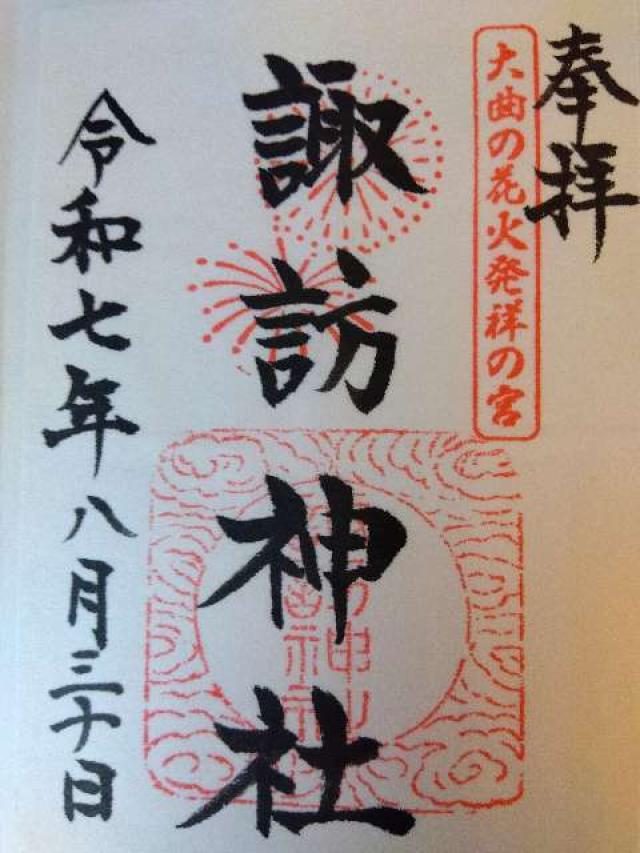 奉拝
大曲の花火発祥の宮
諏訪神社
令和七年八月三十日